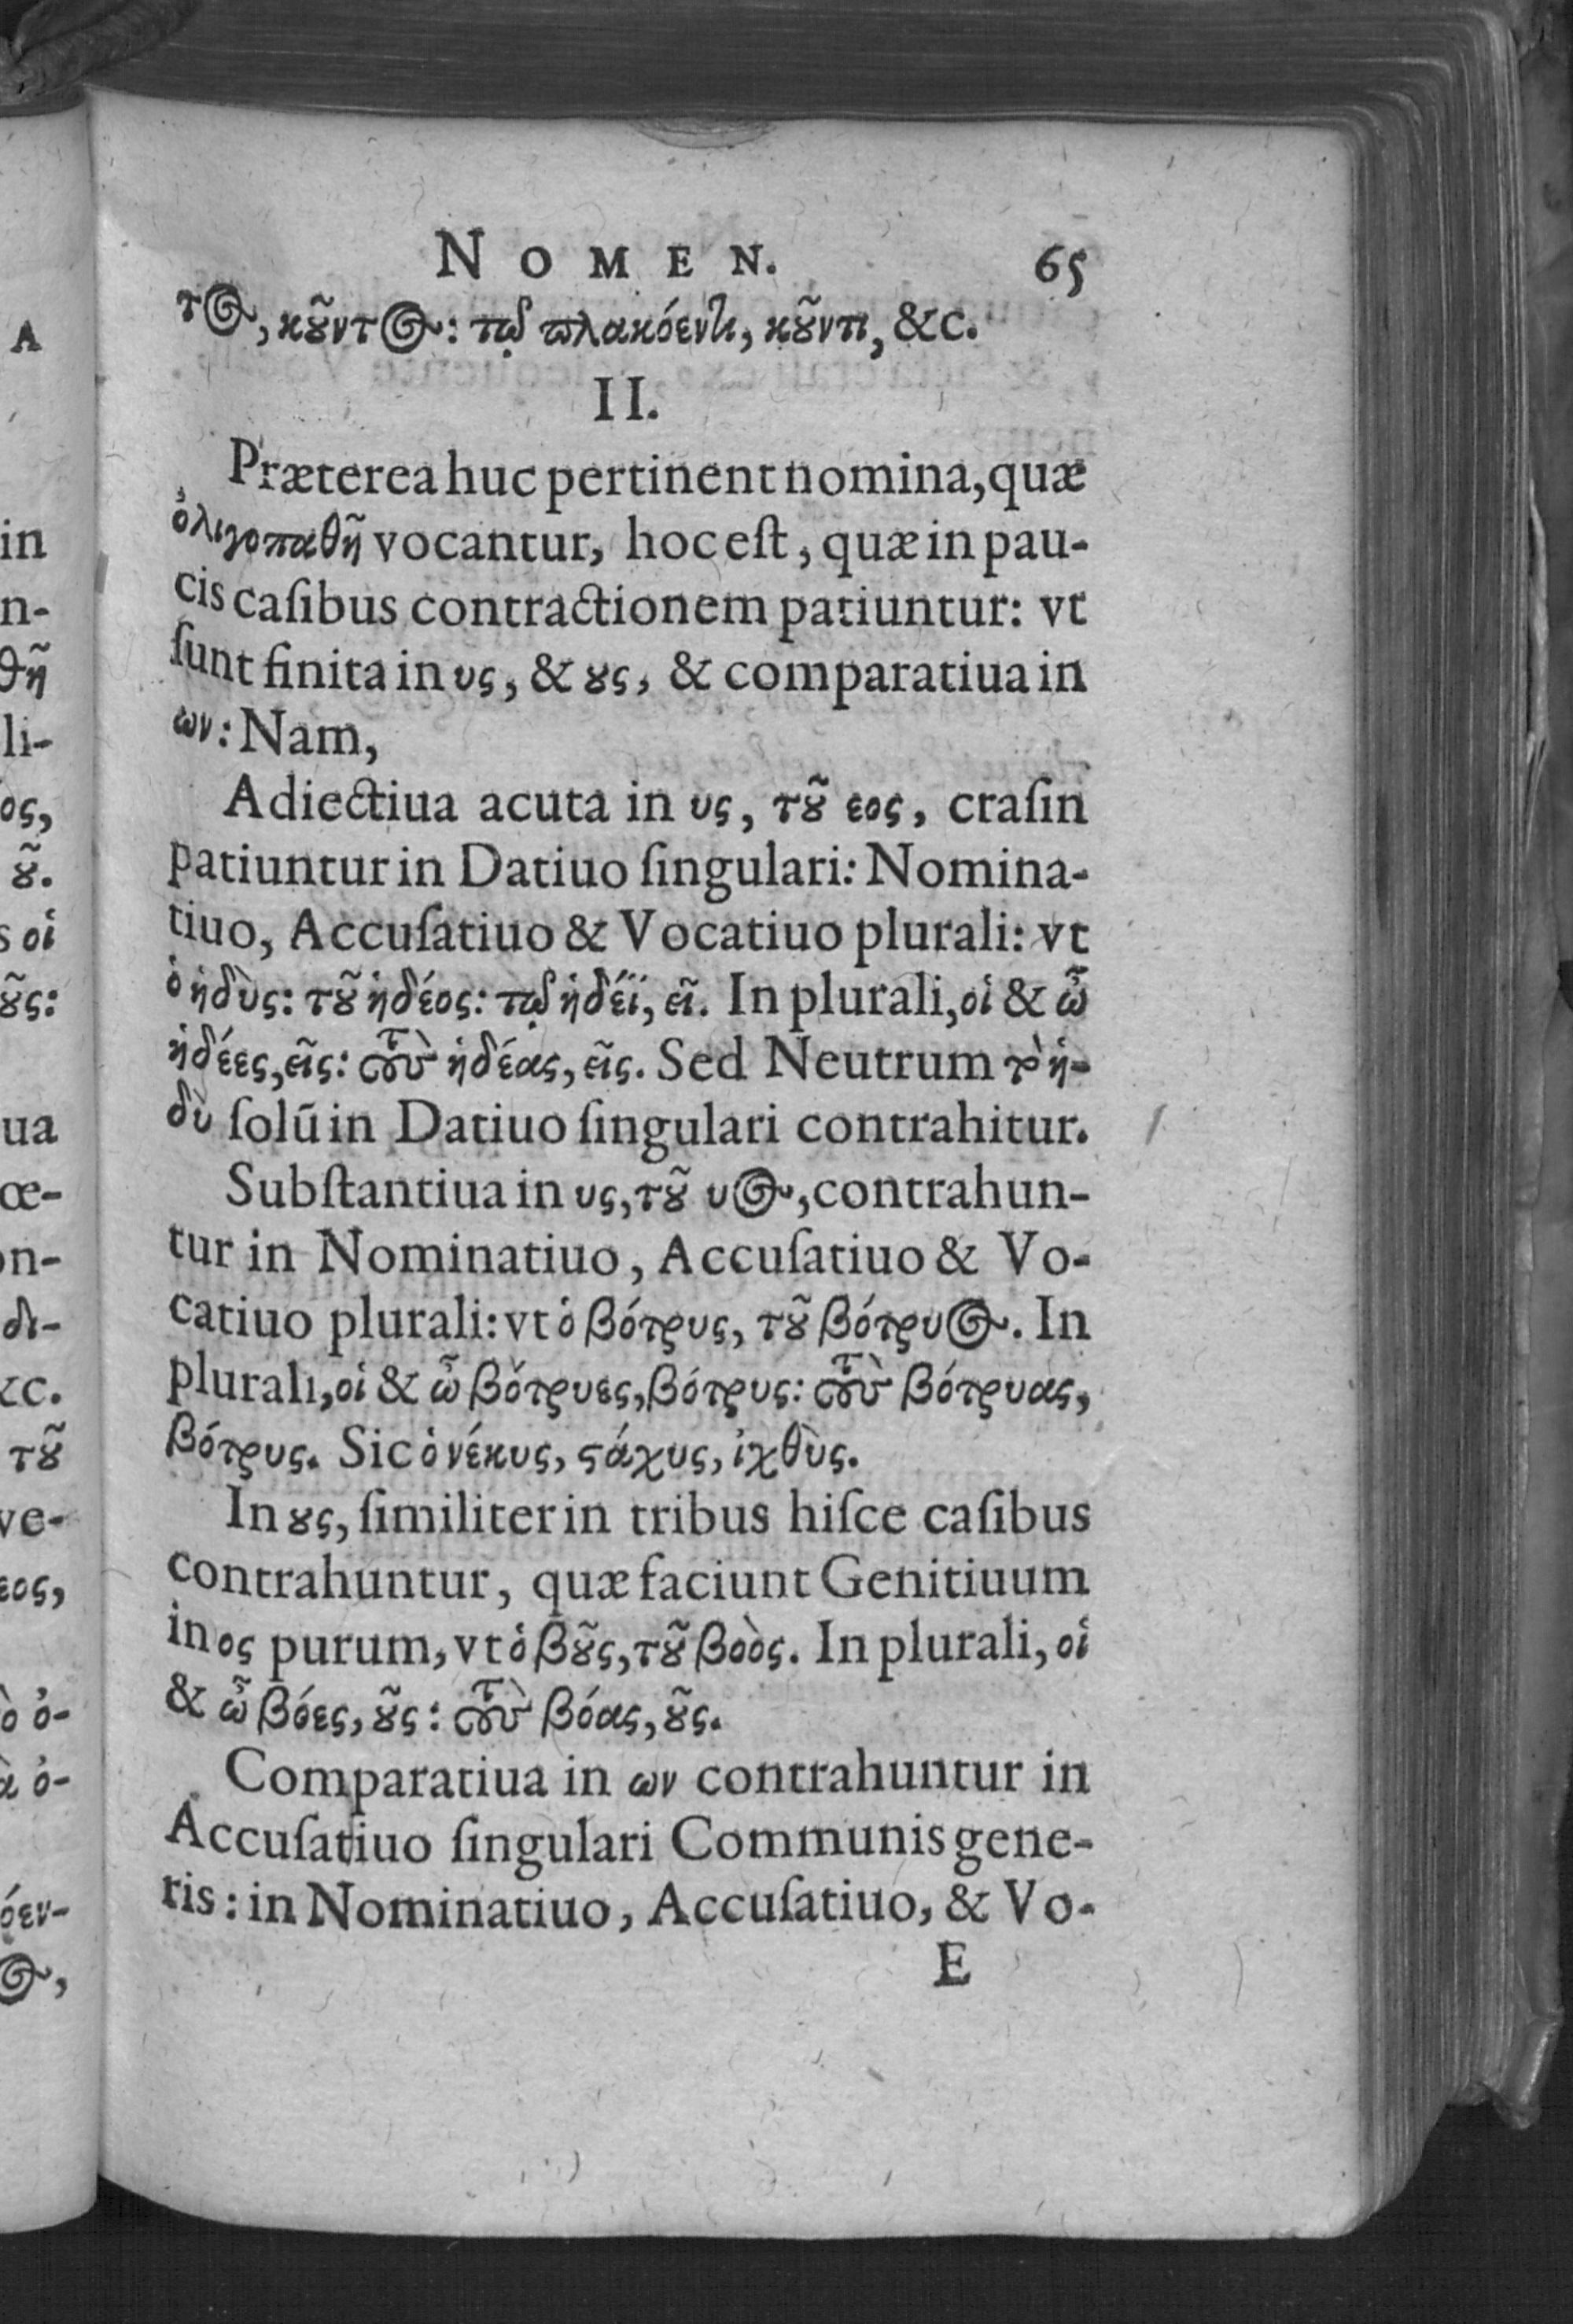 NOMEN. 65
τος, κοῦντος: τῷ πλακόεντι, κοῦντι, &c.
II.
Præterea huc pertinent nomina, quæ
ὀλιγοπαθῆ vocantur, hoc eſt, quæ in pau-
cis caſibus contractionem patiuntur: vt
ſunt finita in υς, & ους, & comparatiua in
ων: Nam,
Adiectiua acuta in υς, τοῦ εος, craſin
patiuntur in Datiuo ſingulari: Nomina-
tiuo, Accuſatiuo & Vocatiuo plurali: vt
ὁ ἡδὺς: τοῦ ἡδέος: τῷ ἡδέϊ, εῖ. In plurali, οἱ & ὦ
ἡδέες, εῖς: τοὺς ἡδέας, εῖς. Sed Neutrum τὸ ἡ-
δὺ ſolū in Datiuo ſingulari contrahitur.
Subſtantiua in υς, τοῦ υος, contrahun-
tur in Nominatiuo, Accuſatiuo & Vo-
catiuo plurali: vt ὁ βότρυς, τοῦ βότρυος. In
plurali, οἱ & ὦ βότρυες, βότρυς: τοὺς βότρυας,
βότρυς. Sic ὁ νέκυς, ϛάχυς, ἰχθὺς.
In ους, ſimiliter in tribus hiſce caſibus
contrahuntur, quæ faciunt Genitiuum
in ος purum, vt ὁ βοῦς, τοῦ βοὸς. In plurali, οἱ
& ὦ βόες, οῦς: τοὺς βόας, οῦς.
Comparatiua in ων contrahuntur in
Accuſatiuo ſingulari Communis gene-
ris: in Nominatiuo, Accuſatiuo, & Vo-
E